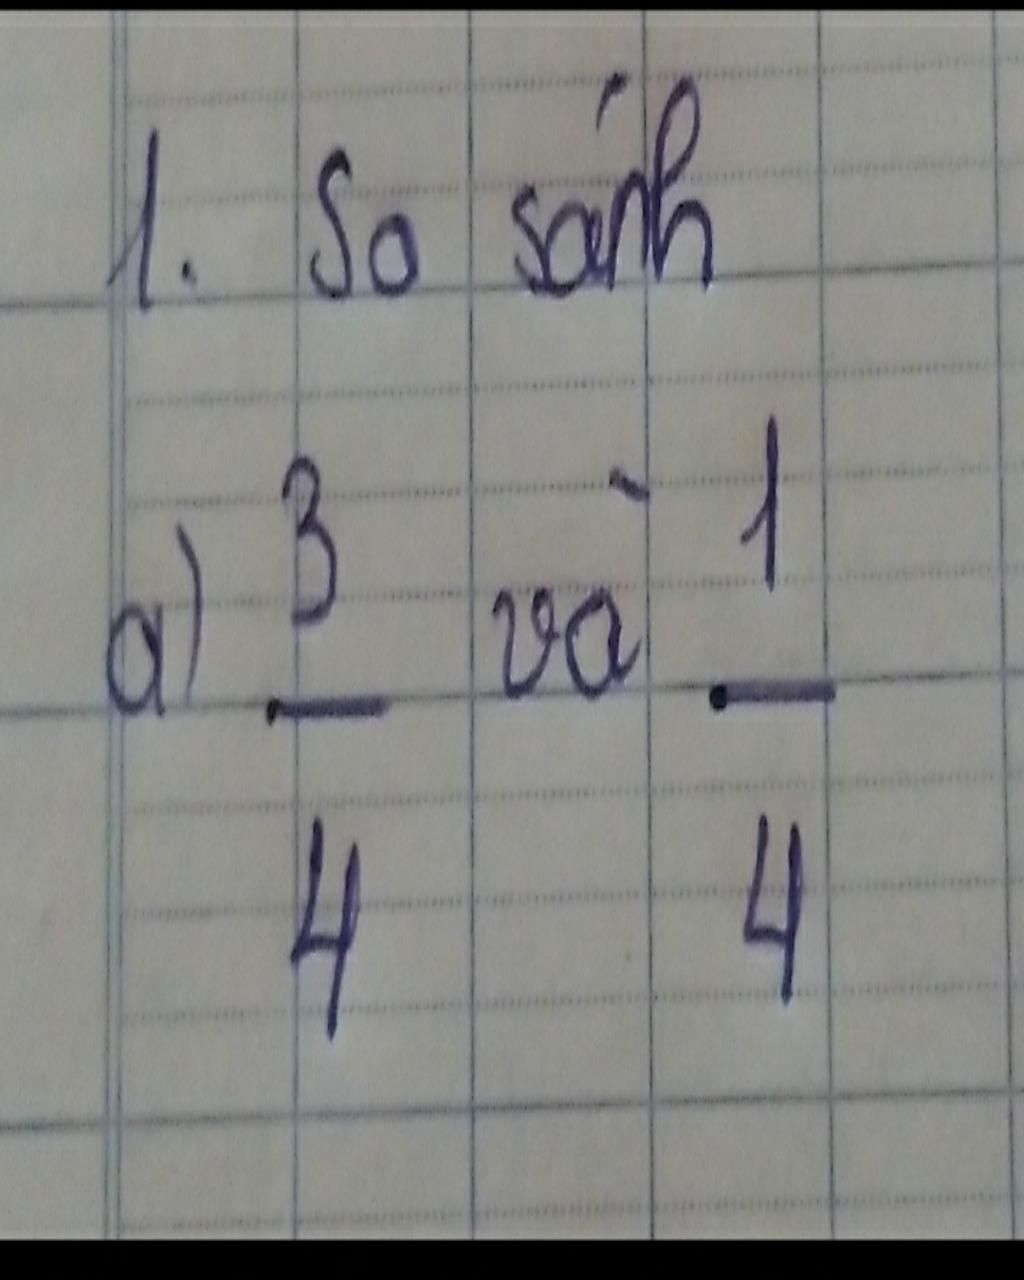 1. So sánh
a) 3/4 và 1/4